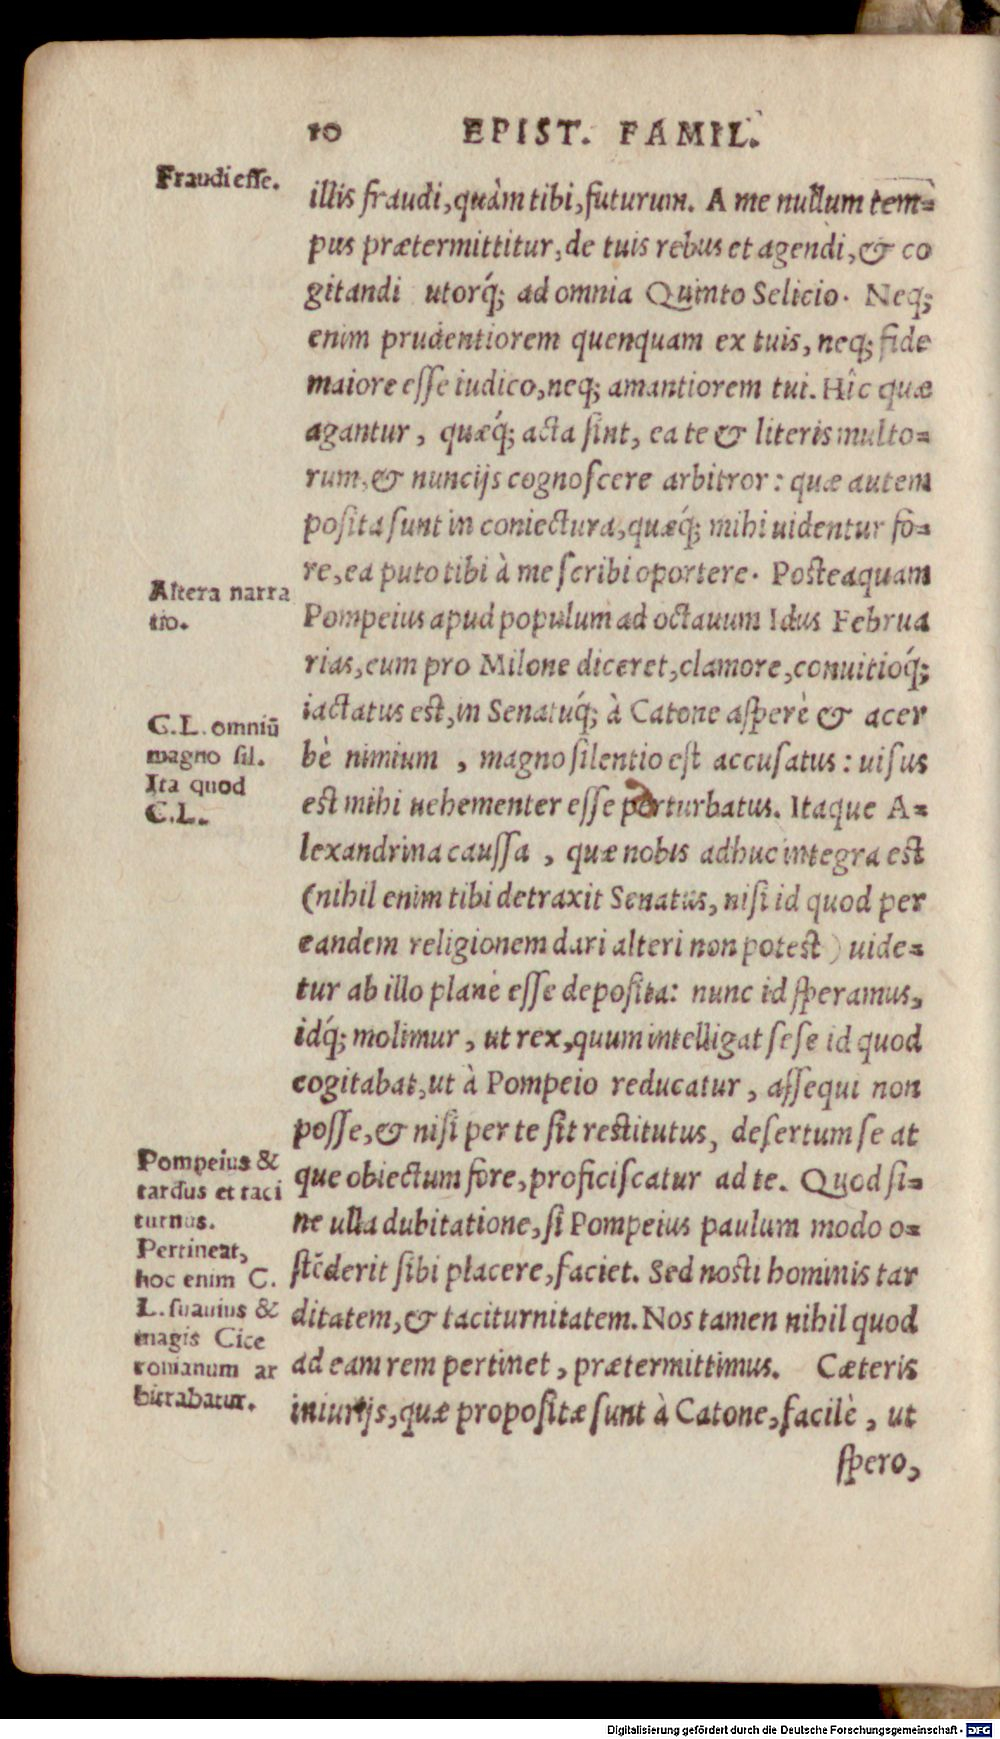 10 EPIST. FAMIL.
Fraudi esse.
illis fraudi, quàm tibi, futurum. A me nullum tem=
pus prætermittitur, de tuis rebus et agendi, & co
gitandi utorq́; ad omnia Quinto Selicio. Neq;
enim prudentiorem quenquam ex tuis, neq; fide
maiore esse iudico, neq; amantiorem tui. Hîc quæ
agantur, quæq́; acta sint, ea te & literis multo=
rum, & nuncijs cognoscere arbitror: quæ autem
posita sunt in coniectura, quæq́; mihi uidentur fo=
re, ea puto tibi à me scribi oportere. Posteaquam
Altera narra
tio.
Pompeius apud populum ad octauum Idus Februa
rias, cum pro Milone diceret, clamore, conuitioq́;
iactatus est, in Senatuq́; à Catone asperè & acer
C.L. omniū
magno sil.
Ita quod
C.L.
bè nimium, magno silentio est accusatus: uisus
est mihi uehementer esse perturbatus. Itaque A=
lexandrina caussa, quæ nobis adhuc integra est
(nihil enim tibi detraxit Senatus, nisi id quod per
eandem religionem dari alteri non potest) uide=
tur ab illo planè esse deposita: nunc id speramus,
idq́; molimur, ut rex, quum intelligat sese id quod
cogitabat, ut à Pompeio reducatur, assequi non
posse, & nisi per te sit restitutus, desertum se at
Pompeius &
tardus et taci
turnus.
Pertineat,
hoc enim C.
L. suauius &
magis Cice
ronianum ar
bitrabatur.
que obiectum fore, proficiscatur ad te. Quod si=
ne ulla dubitatione, si Pompeius paulum modo o=
stēderit sibi placere, faciet. Sed nosti hominis tar
ditatem, & taciturnitatem. Nos tamen nihil quod
ad eam rem pertinet, prætermittimus. Cæteris
iniurijs, quæ propositæ sunt à Catone, facilè, ut
spero,
Digitalisierung gefördert durch die Deutsche Forschungsgemeinschaft - DFG